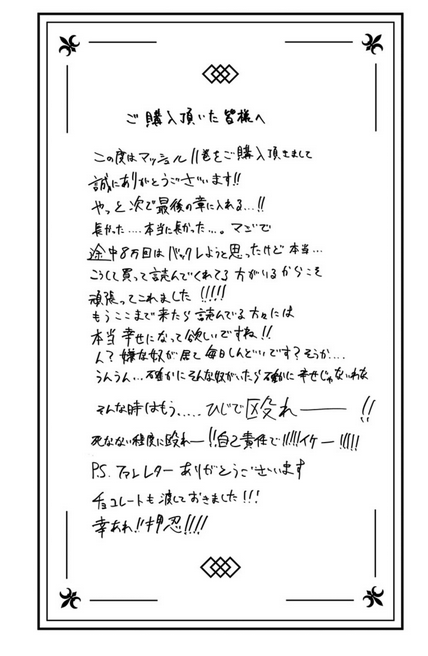 ご購入頂いた皆様へ
この度はマッシュル11巻をご購入頂きまして
誠にありがとうございます!!
やっと次で最後の章に入れる…!!
長かった…本当に長かった…。マジで
途中8万回はバックレようと思ったけど本当…
こうして買って読んでくれてる方がいるからこそ
頑張ってこれました!!!!!
もうここまで来たら読んでる方々には
本当幸せになって欲しいですね!!
ん?嫌な奴が居て毎日しんどいです?そうか…
うんうん…確かにそんな奴がいたら確かに幸せじゃないわな
そんな時はもう…..ひじで殴れー!!
死なない程度に殴れー!!自己責任で!!!!!イケー!!!!!
P.S.ファンレターありがとうございます
チョコレートも渡しておきました!!!
幸あれ!!押忍!!!!